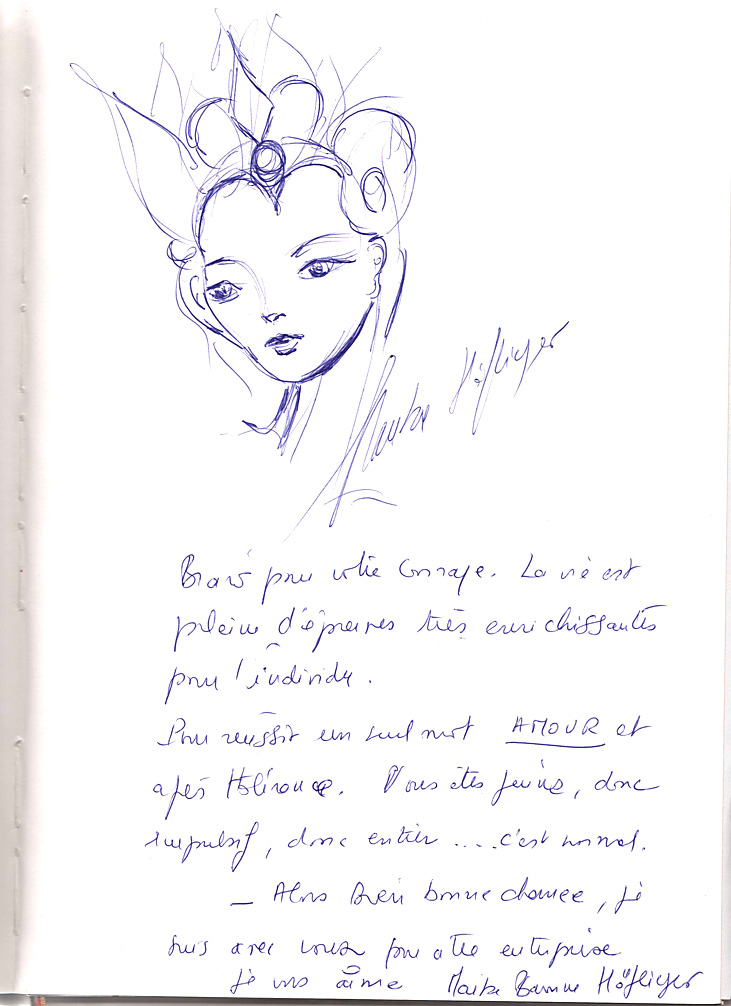 Höfliger
Bravo pour votre courage. La vie est
pleine d'épreuves très enrichissantes
pour l'individu.
Pour réussir un seul mot AMOUR et
après tolérance. Vous êtes jeune, donc
impulsif, donc entier .... c'est normal.
– Alors bien bonne chance, je
suis avec vous pour votre entreprise
je vous aime Höfliger